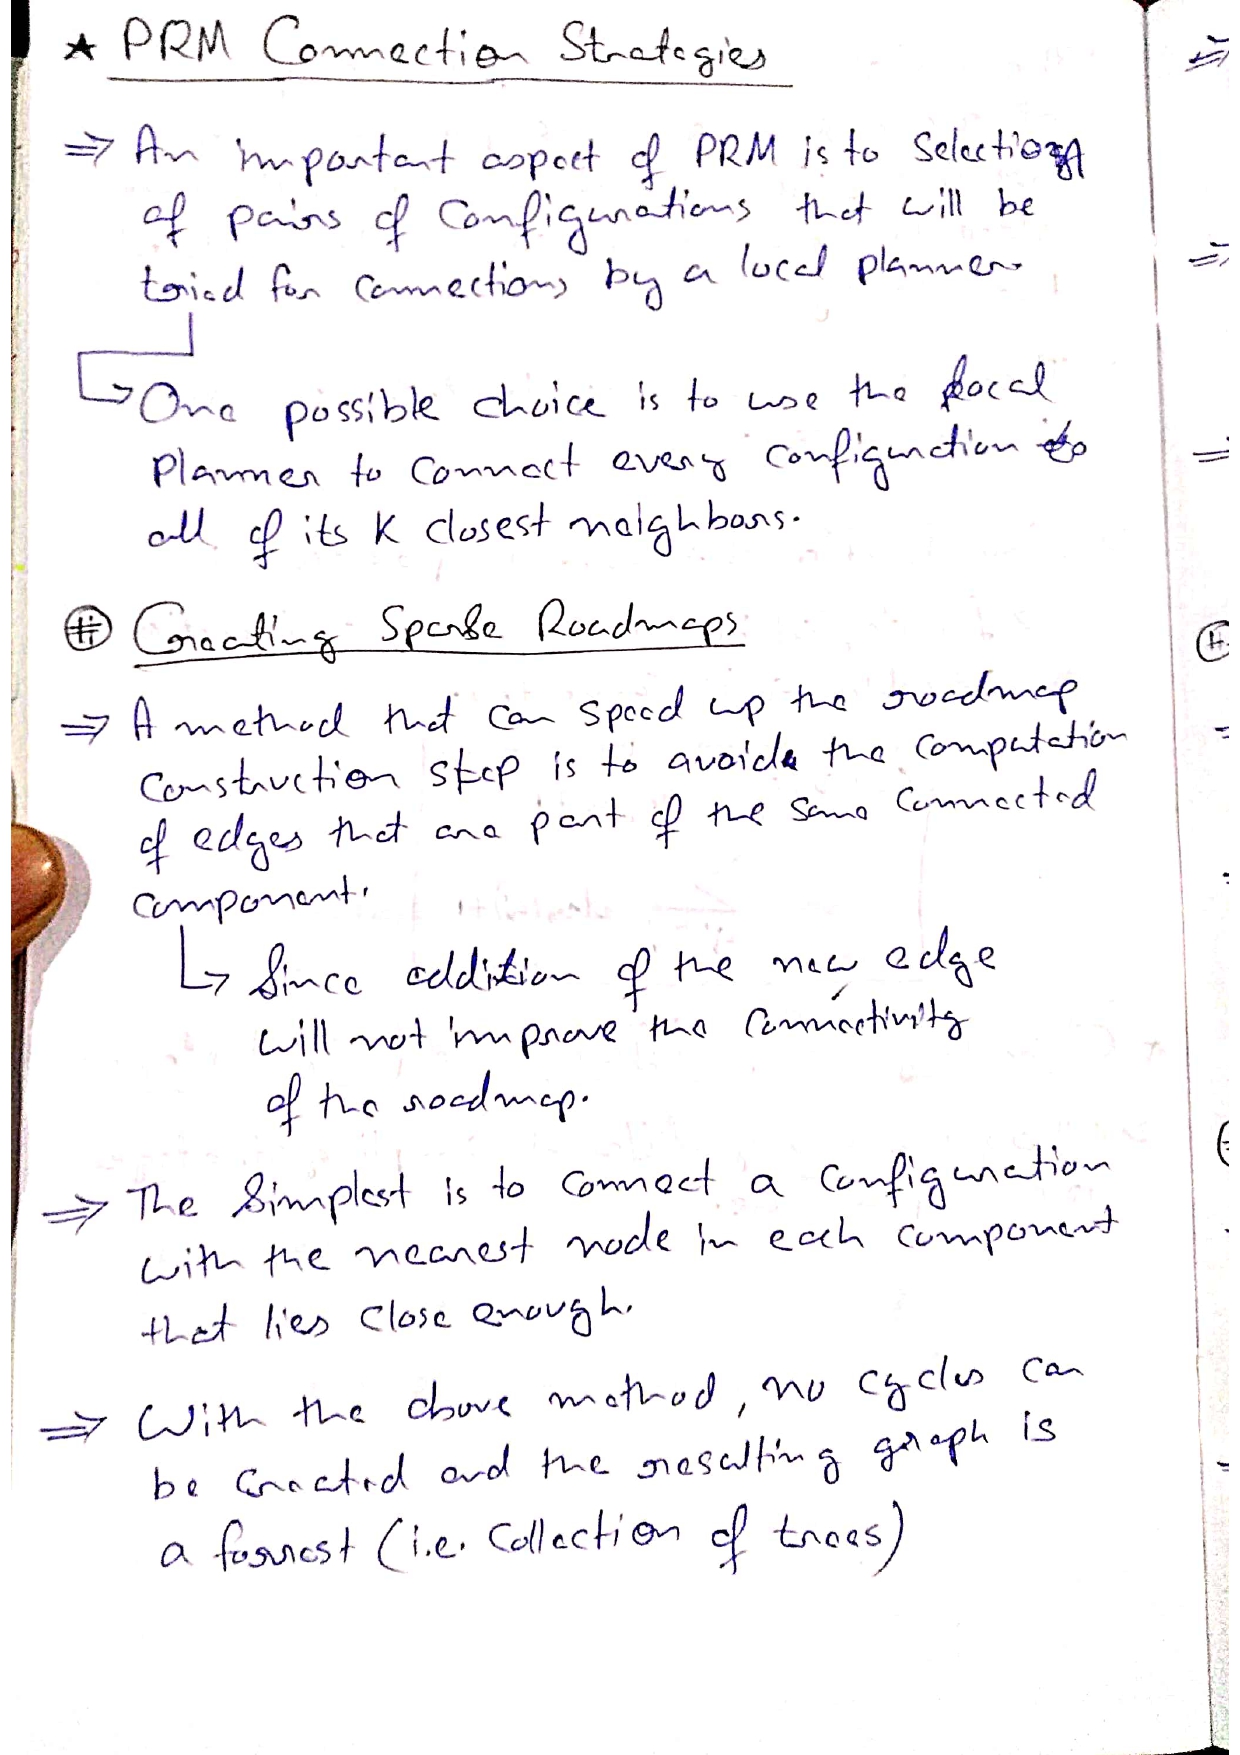 ★ PRM Connection Strategies
⇒ An important aspect of PRM is to Selection
of pairs of Configurations that will be
tried for connections by a local planner
↳ One possible choice is to use the local
Planner to Connect every configuration to
all of its K closest neighbors.
# Creating Sparse Roadmaps
⇒ A method that can speed up the roadmap
Construction step is to avoide the Computation
of edges that are part of the same Connected
component.
↳ Since addition of the new edge
will not improve the connectivity
of the roadmap.
⇒ The Simplest is to Connect a Configuration
with the nearest node in each component
that lies close enough.
⇒ With the above method, no cycles can
be created and the resulting graph is
a forrest (i.e. Collection of trees)